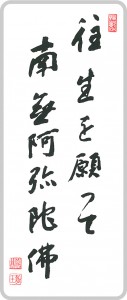 往生を願って
南無阿弥陀佛